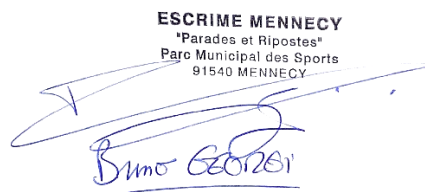 ESCRIME MENNECY
"Parades et Ripostes"
Parc Municipal des Sports
91540 MENNECY
Bruno GEORGI